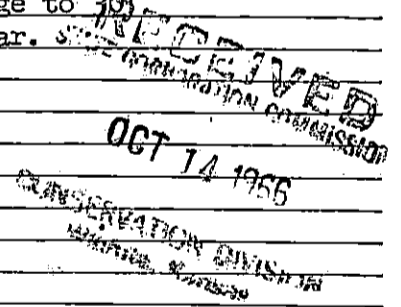 ge to
ar.
RECEIVED
STATE CORPORATION COMMISSION
OCT 14 1966
CONSERVATION DIVISION
Wichita, Kansas